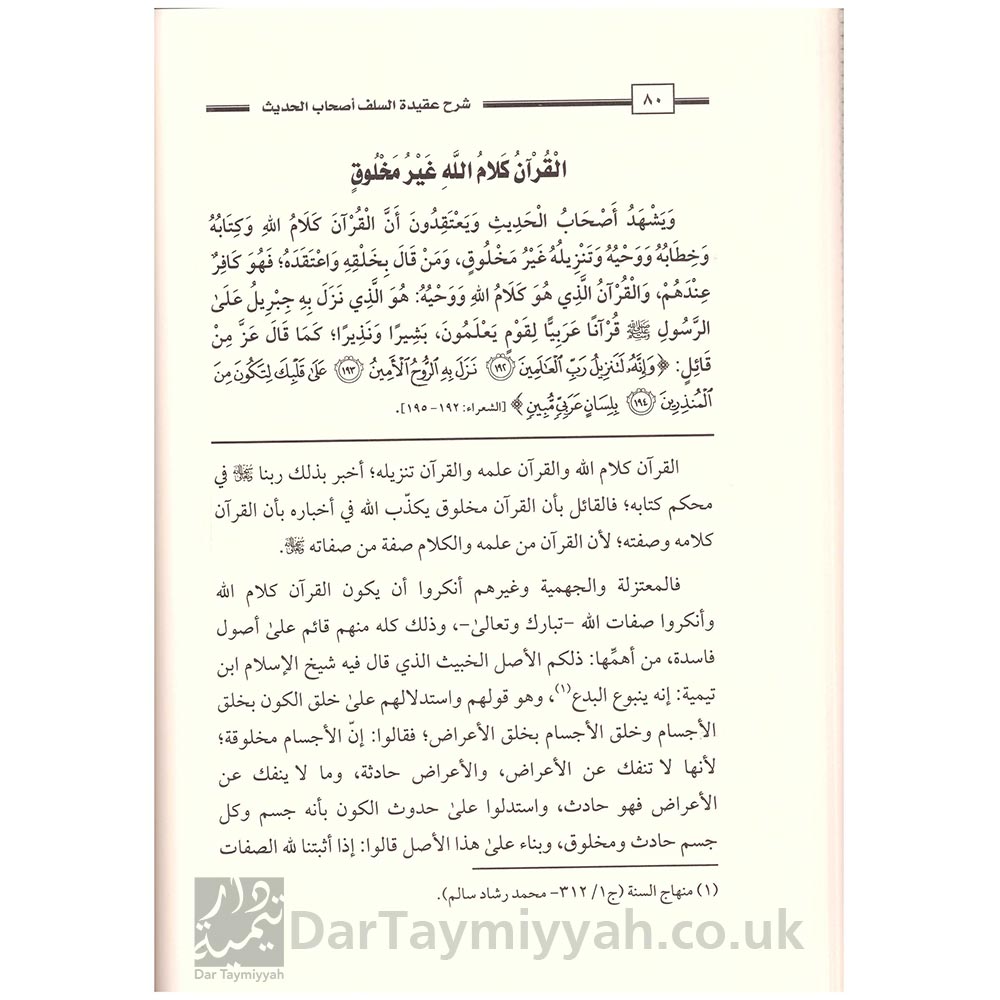 ٨٠
شرح عقيدة السلف أصحاب الحديث
الْقُرْآنُ كَلَامُ اللَّهِ غَيْرُ مَخْلُوقٍ
وَيَشْهَدُ أَصْحَابُ الْحَدِيثِ وَيَعْتَقِدُونَ أَنَّ الْقُرْآنَ كَلَامُ اللهِ وَكِتَابُهُ
وَخِطَابُهُ وَوَحْيُهُ وَتَنْزِيلُهُ غَيْرُ مَخْلُوقٍ، وَمَنْ قَالَ بِخَلْقِهِ وَاعْتَقَدَهُ؛ فَهُوَ كَافِرٌ
عِنْدَهُمْ، وَالْقُرْآنُ الَّذِي هُوَ كَلَامُ اللهِ وَوَحْيُهُ: هُوَ الَّذِي نَزَلَ بِهِ جِبْرِيلُ عَلَىٰ
الرَّسُولِ ﷺ قُرْآنًا عَرَبِيًّا لِقَوْمٍ يَعْلَمُونَ، بَشِيرًا وَنَذِيرًا؛ كَمَا قَالَ عَزَّ مِنْ
قَائِلٍ: ﴿وَإِنَّهُۥ لَتَنزِيلُ رَبِّ ٱلْعَالَمِينَ ١٩٢ نَزَلَ بِهِ ٱلرُّوحُ ٱلْأَمِينُ ١٩٣ عَلَىٰ قَلْبِكَ لِتَكُونَ مِنَ
ٱلْمُنذِرِينَ ١٩٤ بِلِسَانٍ عَرَبِيٍّ مُّبِينٍ﴾ [الشعراء: ١٩٢- ١٩٥].
القرآن كلام الله والقرآن علمه والقرآن تنزيله؛ أخبر بذلك ربنا ﷻ في
محكم كتابه؛ فالقائل بأن القرآن مخلوق يكذّب الله في أخباره بأن القرآن
كلامه وصفته؛ لأن القرآن من علمه والكلام صفة من صفاته ﷻ.
فالمعتزلة والجهمية وغيرهم أنكروا أن يكون القرآن كلام الله
وأنكروا صفات الله -تبارك وتعالىٰ-، وذلك كله منهم قائم علىٰ أصول
فاسدة، من أهمِّها: ذلكم الأصل الخبيث الذي قال فيه شيخ الإسلام ابن
تيمية: إنه ينبوع البدع(١)، وهو قولهم واستدلالهم علىٰ خلق الكون بخلق
الأجسام وخلق الأجسام بخلق الأعراض؛ فقالوا: إنّ الأجسام مخلوقة؛
لأنها لا تنفك عن الأعراض، والأعراض حادثة، وما لا ينفك عن
الأعراض فهو حادث، واستدلوا علىٰ حدوث الكون بأنه جسم وكل
جسم حادث ومخلوق، وبناء علىٰ هذا الأصل قالوا: إذا أثبتنا لله الصفات
(١) منهاج السنة (ج١/ ٣١٢- محمد رشاد سالم).
دار تيمية
Dar Taymiyyah
DarTaymiyyah.co.uk